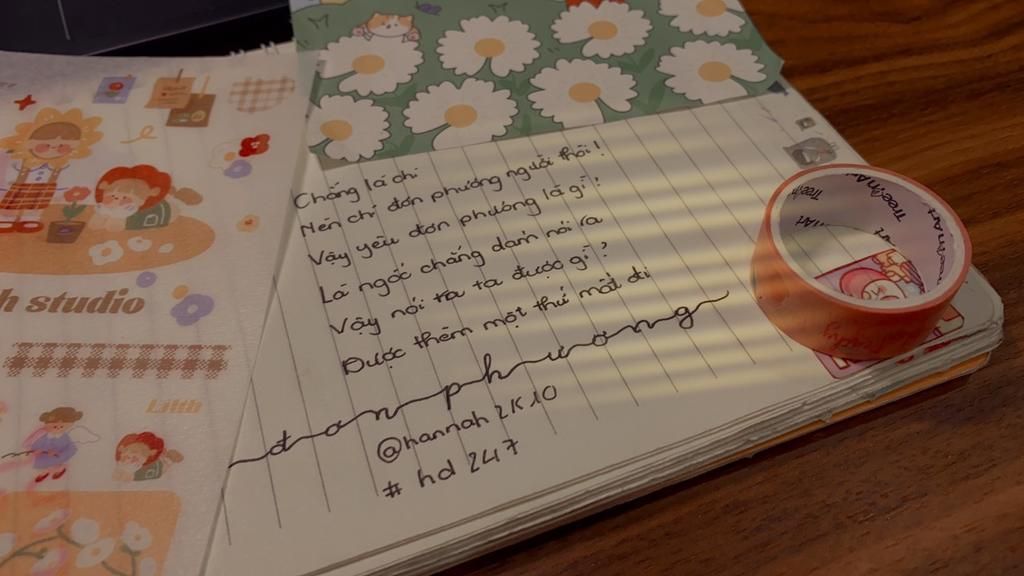 Chẳng là chi
Nên chỉ đơn phương người thôi!
Vậy yêu đơn phương là gì?
Là ngốc chẳng dám nói ra
Vậy nói ra ta được gì?
Được thêm một thứ mất đi
đơn phương
@hannah 2K10
# hd 247
h studio
Lilth